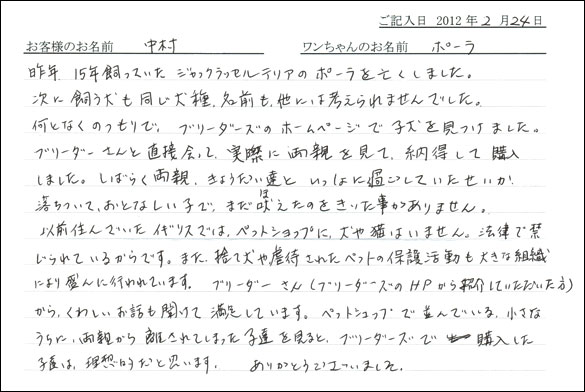 ご記入日 2012年2月24日
お客様のお名前 中村 ワンちゃんのお名前 ポーラ
昨年、15年飼っていた ジャックラッセルテリアの ポーラを亡くしました。
次に飼う犬も同じ犬種、名前も、他には考えられませんでした。
何となくのつもりで、ブリーダーズのホームページで子犬を見つけました。
ブリーダーさんと直接会って、実際に両親を見て、納得して購入
しました。しばらく両親、きょうだい達と いっしょに過ごしていたせいか、
落ちついて、おとなしい子で、まだ吠えたのをきいた事がありません。
以前住んでいたイギリスでは、ペットショップに、犬や猫はいません。法律で禁
じられているからです。また、捨て犬や虐待されたペットの保護活動も大きな組織
により盛んに行われています。ブリーダーさん(ブリーダーズのHPから紹介していただいた方)
から、くわしいお話も聞けて満足しています。ペットショップで並んでいる、小さな
うちに、両親から離されてしまった子達を見ると、ブリーダーズで購入した
子達は、理想的だと思います。 ありがとうございました。